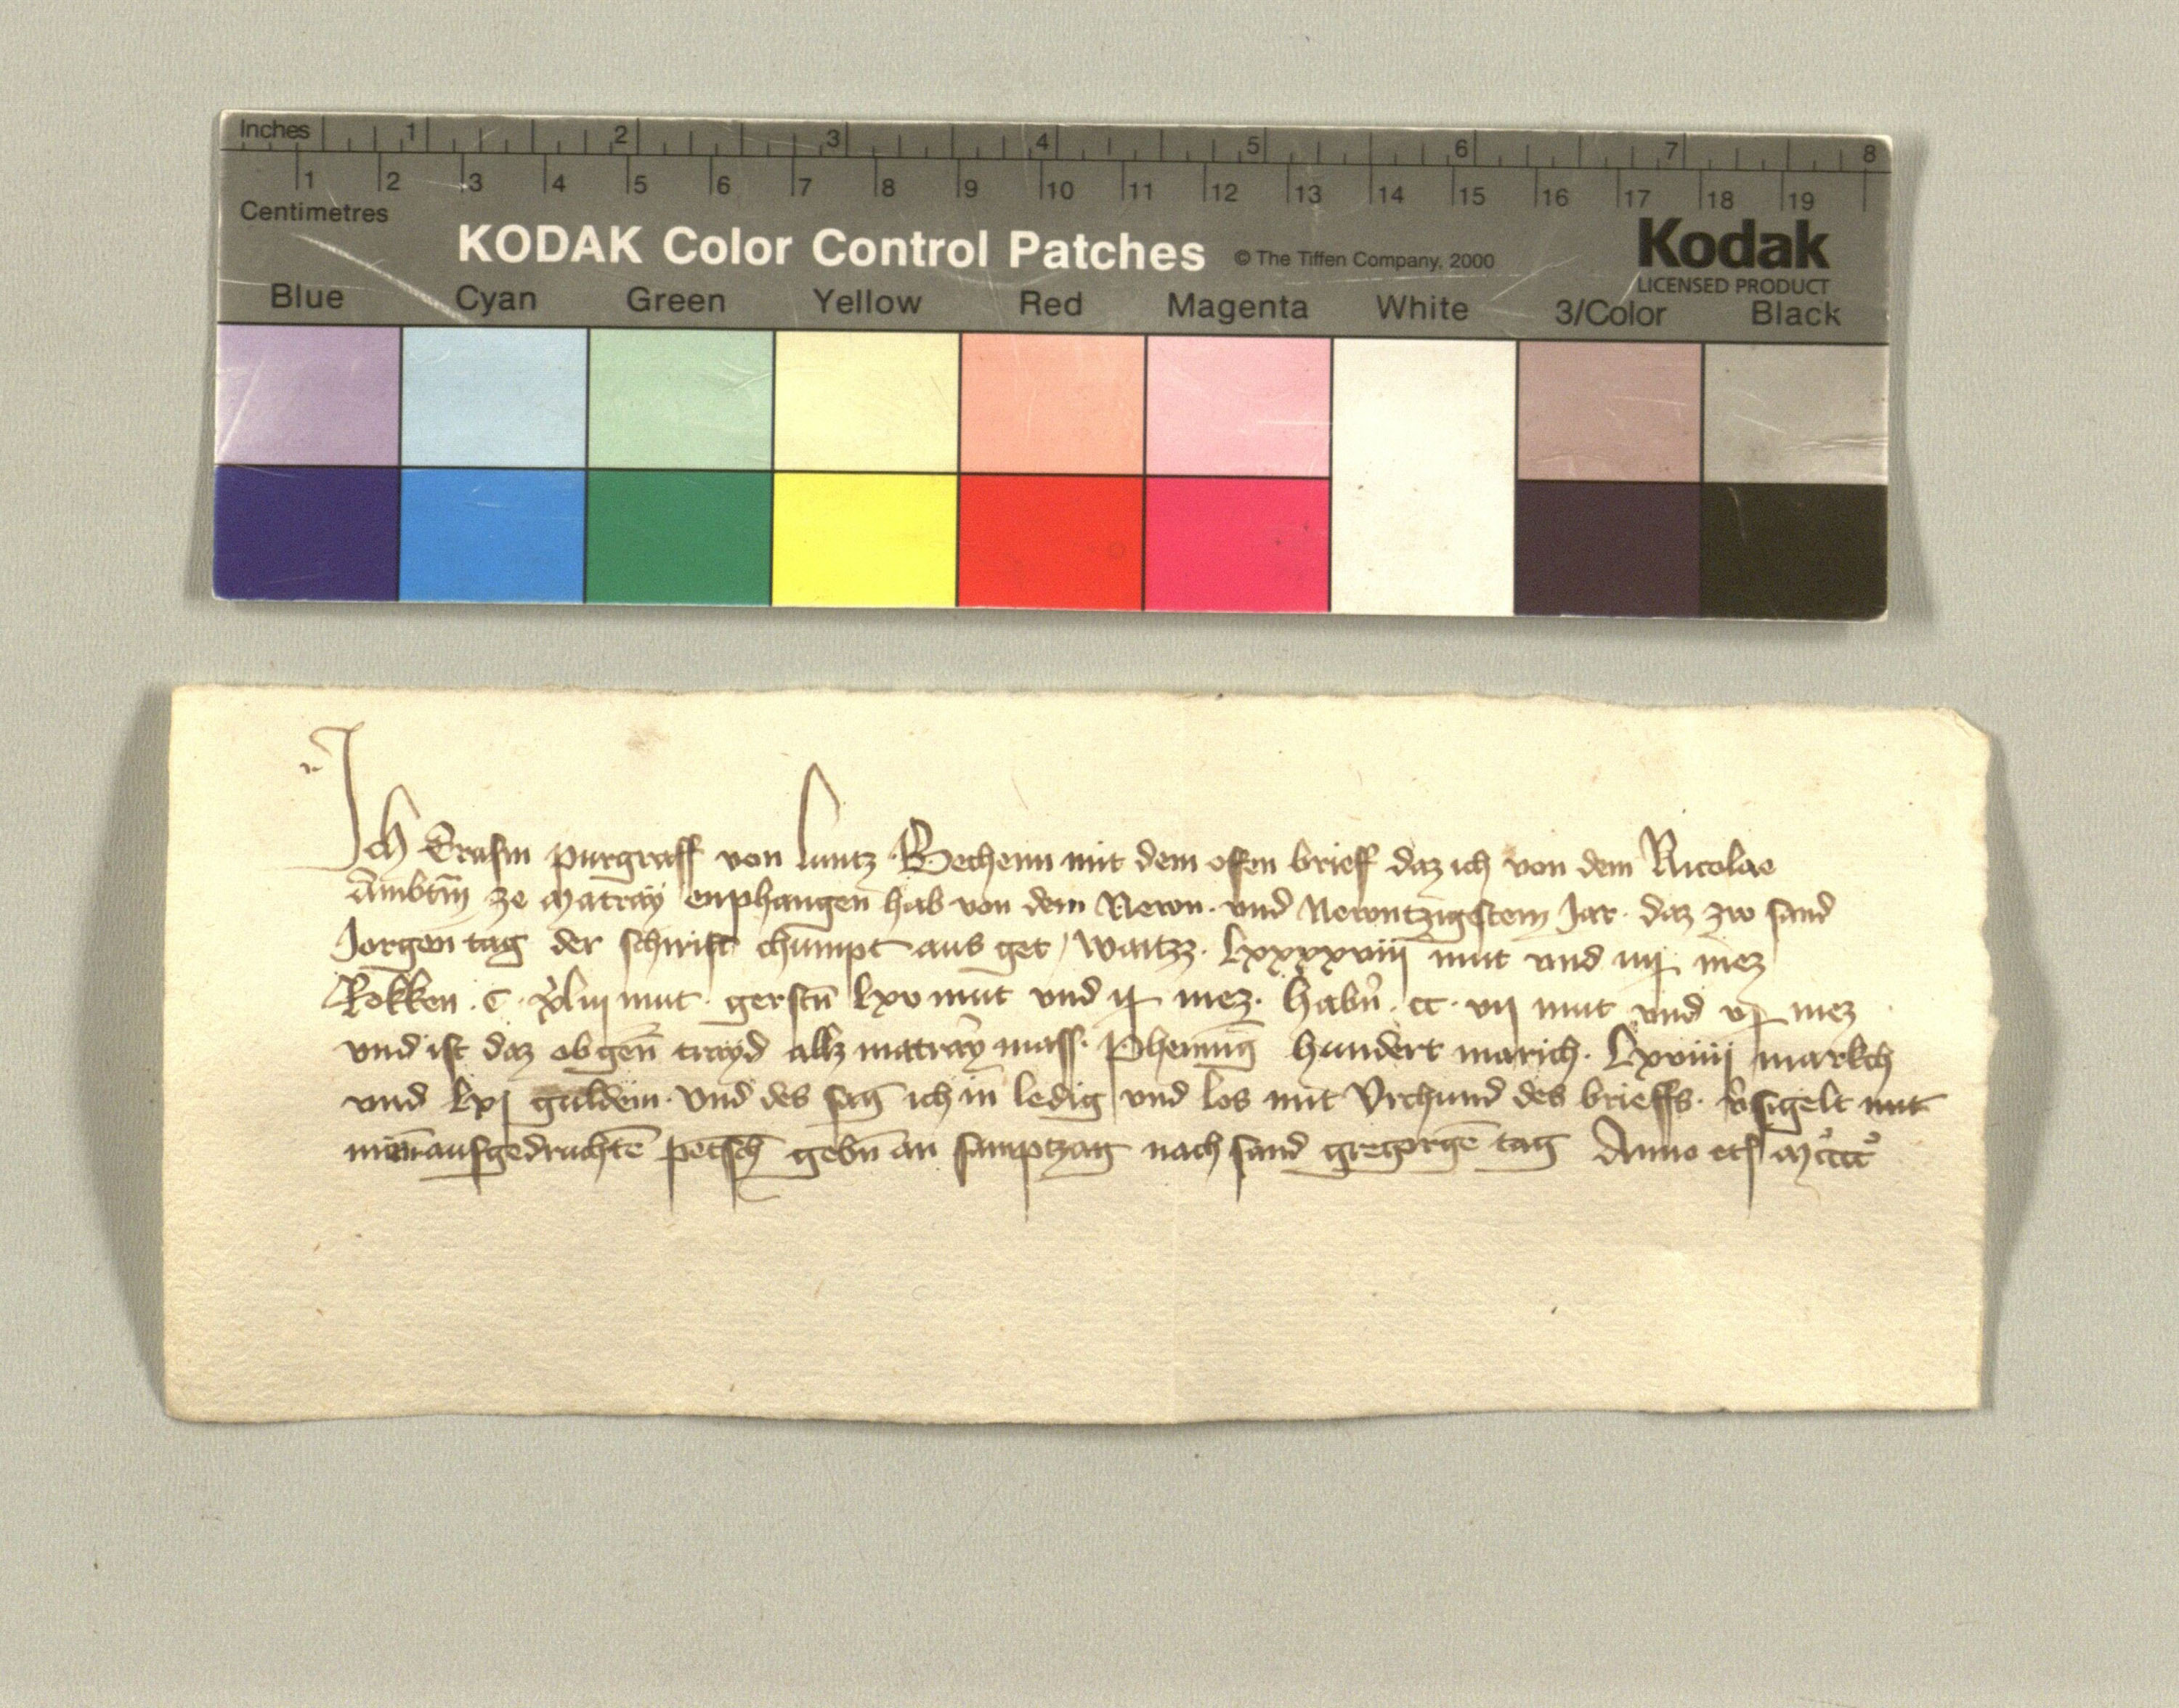 Inches 1 2 3 4 5 6 7 8
1 2 3 4 5 6 7 8 9 10 11 12 13 14 15 16 17 18 19
Centimetres
KODAK Color Control Patches © The Tiffen Company, 2000 Kodak
LICENSED PRODUCT
Blue Cyan Green Yellow Red Magenta White 3/Color Black
Ich Erasm purgraff von luntz Bechenn mit dem ofen brieff daz ich von dem Nicolae
ambtm̄ ze Matray enphangen hab von dem Newn · und Newntzigstem Jar · daz zw sand
Jorgen tag der schirist chumpt aus get / Waitzz · Lxxxxviiij mut und iiij mez
Rokken · C · xliij mut · gerstn̄ Lxv mut und ij mez · habn̄ · cc · vij mut und vj mez
und ist daz obgen̄ trayd allz matrayˀ mass · Pheninḡ hundert marich · Lxviiij markch
und Lxj guldein · Und des saḡ ich in ledig und los mit Vrchund des brieffs · v̄sigelt mit
mein̄ aufgedruchtē petsch̄ gebn̄ an samptztag nach sand gregorgē tag Anno etc Mͦccccͦ